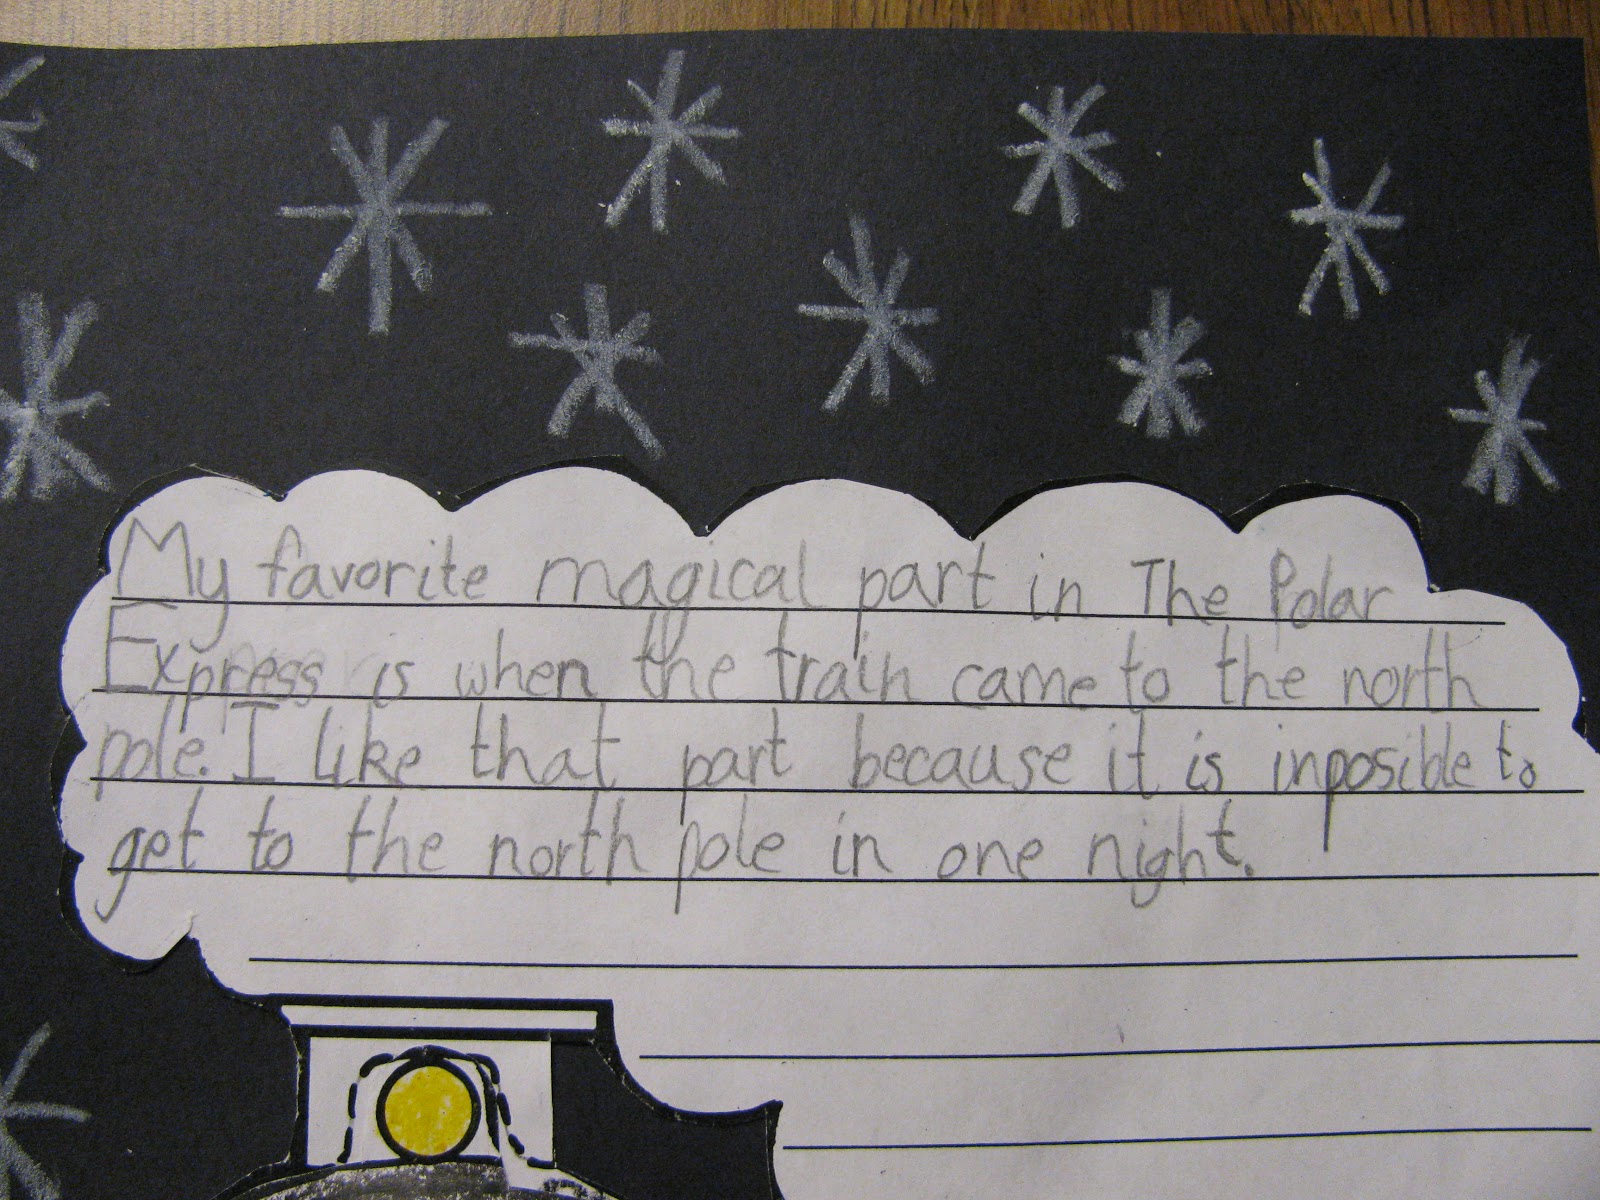 My favorite magical part in The Polar
Express is when the train came to the north
pole. I like that part because it is inposible to
get to the north pole in one night.